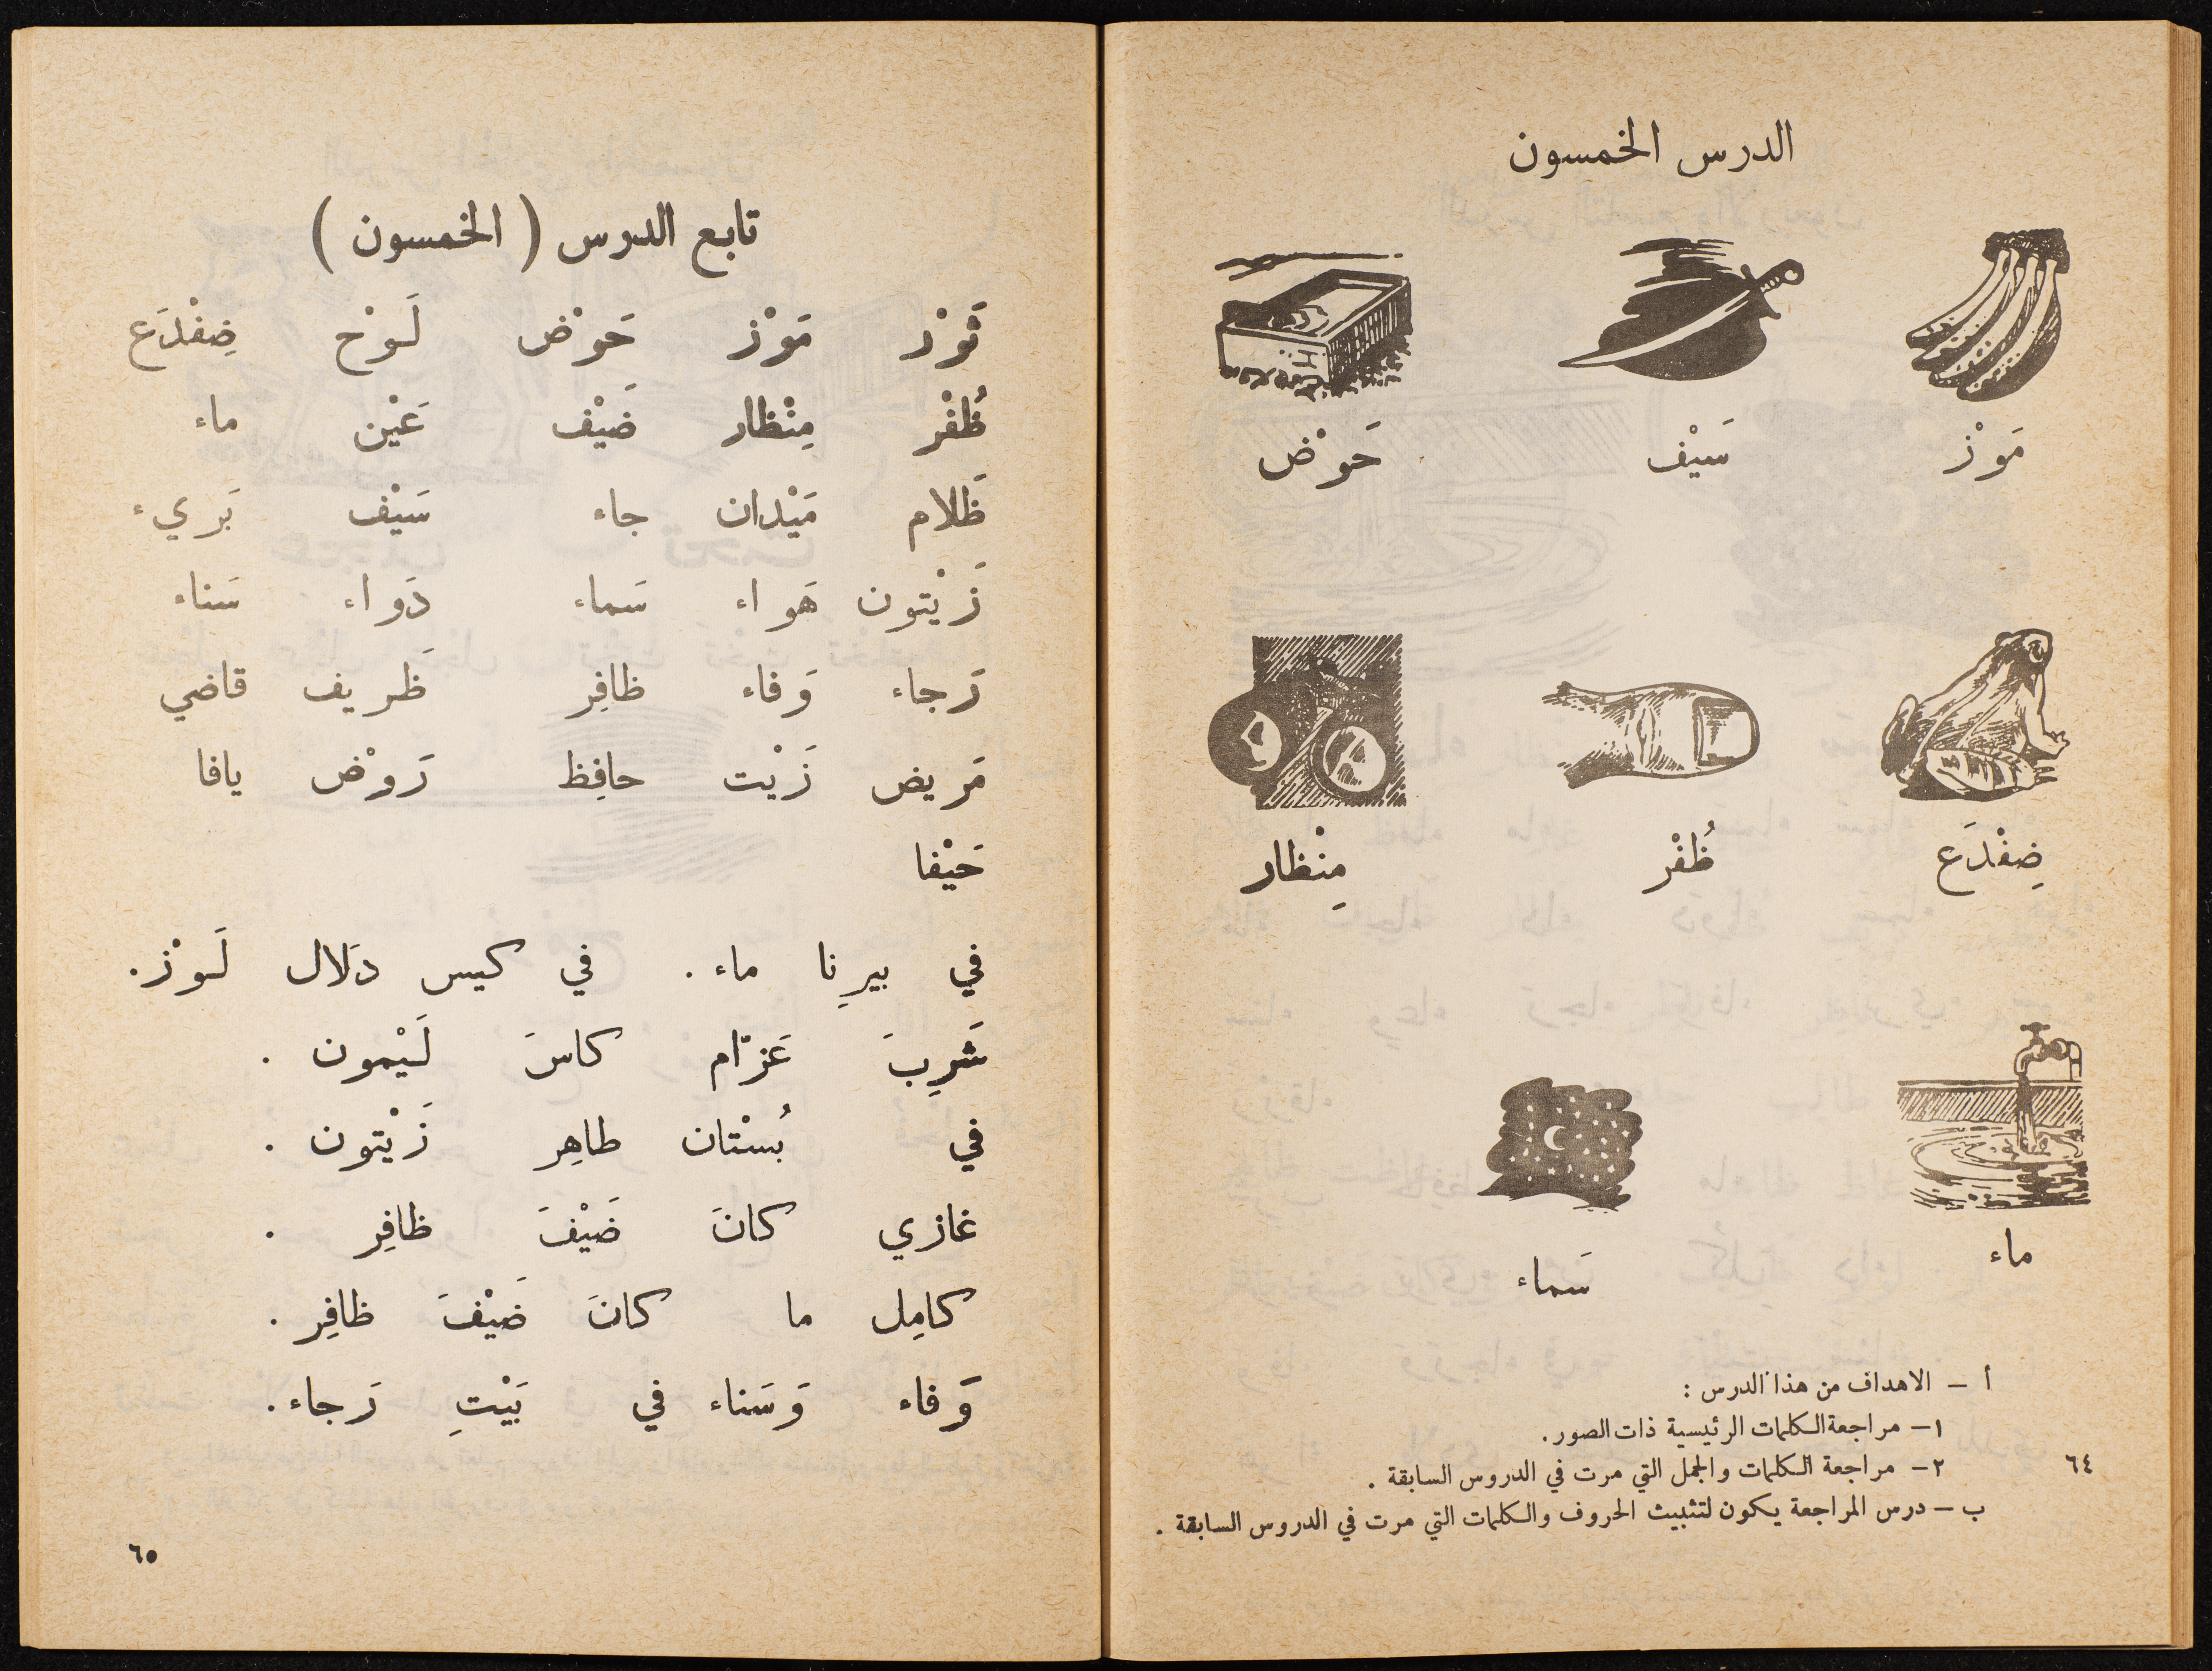 الدرس الخمسون
مَوْز سَيْف حَوْض
ضِفْدَع ظُفْر مِنْظار
ماء
سَماء
أ – الاهداف من هذا الدرس :
١– مراجعة الكلمات الرئيسية ذات الصور.
٢– مراجعة الكلمات والجمل التي مرت في الدروس السابقة .
ب – درس المراجعة يكون لتثبيث الحروف والكلمات التي مرت في الدروس السابقة .
٦٤
تابع الدرس ( الخمسون )
ثَوْر مَوْز حَوْض لَوْح ضِفْدَع
ظُفْر مِنْظار ضَيْف عَيْن ماء
ظَلام مَيْدان جاء سَيْف بَريء
زَيْتون هَواء سَماء دَواء سَناء
رَجاء وَفاء ظافِر ظَريف قاضي
مَريض زَيْت حافِظ رَوْض يافا
حَيْفا
في بيرِنا ماء . في كيس دَلال لَوْز .
شَرِبَ عَزّام كاسَ لَيْمون .
في بُسْتان طاهِر زَيْتون .
غازي كانَ ضَيْفَ ظافِر .
كامِل ما كانَ ضَيْفَ ظافِر .
وَفاء وَسَناء في بَيْتِ رَجاء .
٦٥